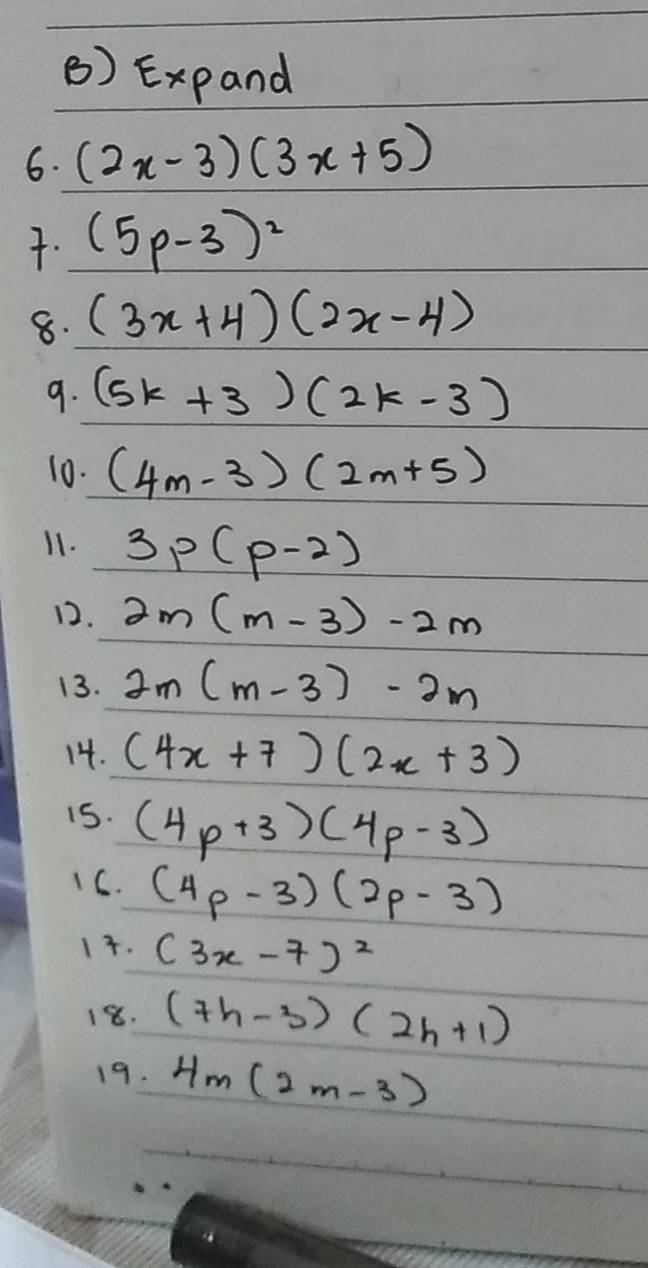 B) Expand
6. (2x-3)(3x+5)
7. (5p-3)²
8. (3x+4)(2x-4)
9. (5k+3)(2k-3)
10. (4m-3)(2m+5)
11. 3p(p-2)
12. 2m(m-3)-2m
13. 2m(m-3)-2m
14. (4x+7)(2x+3)
15. (4p+3)(4p-3)
16. (4p-3)(2p-3)
17. (3x-7)²
18. (7h-3)(2h+1)
19. 4m(2m-3)